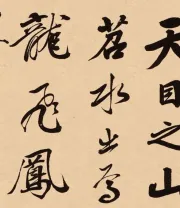 天目之山
苕水出焉
龍飛鳳